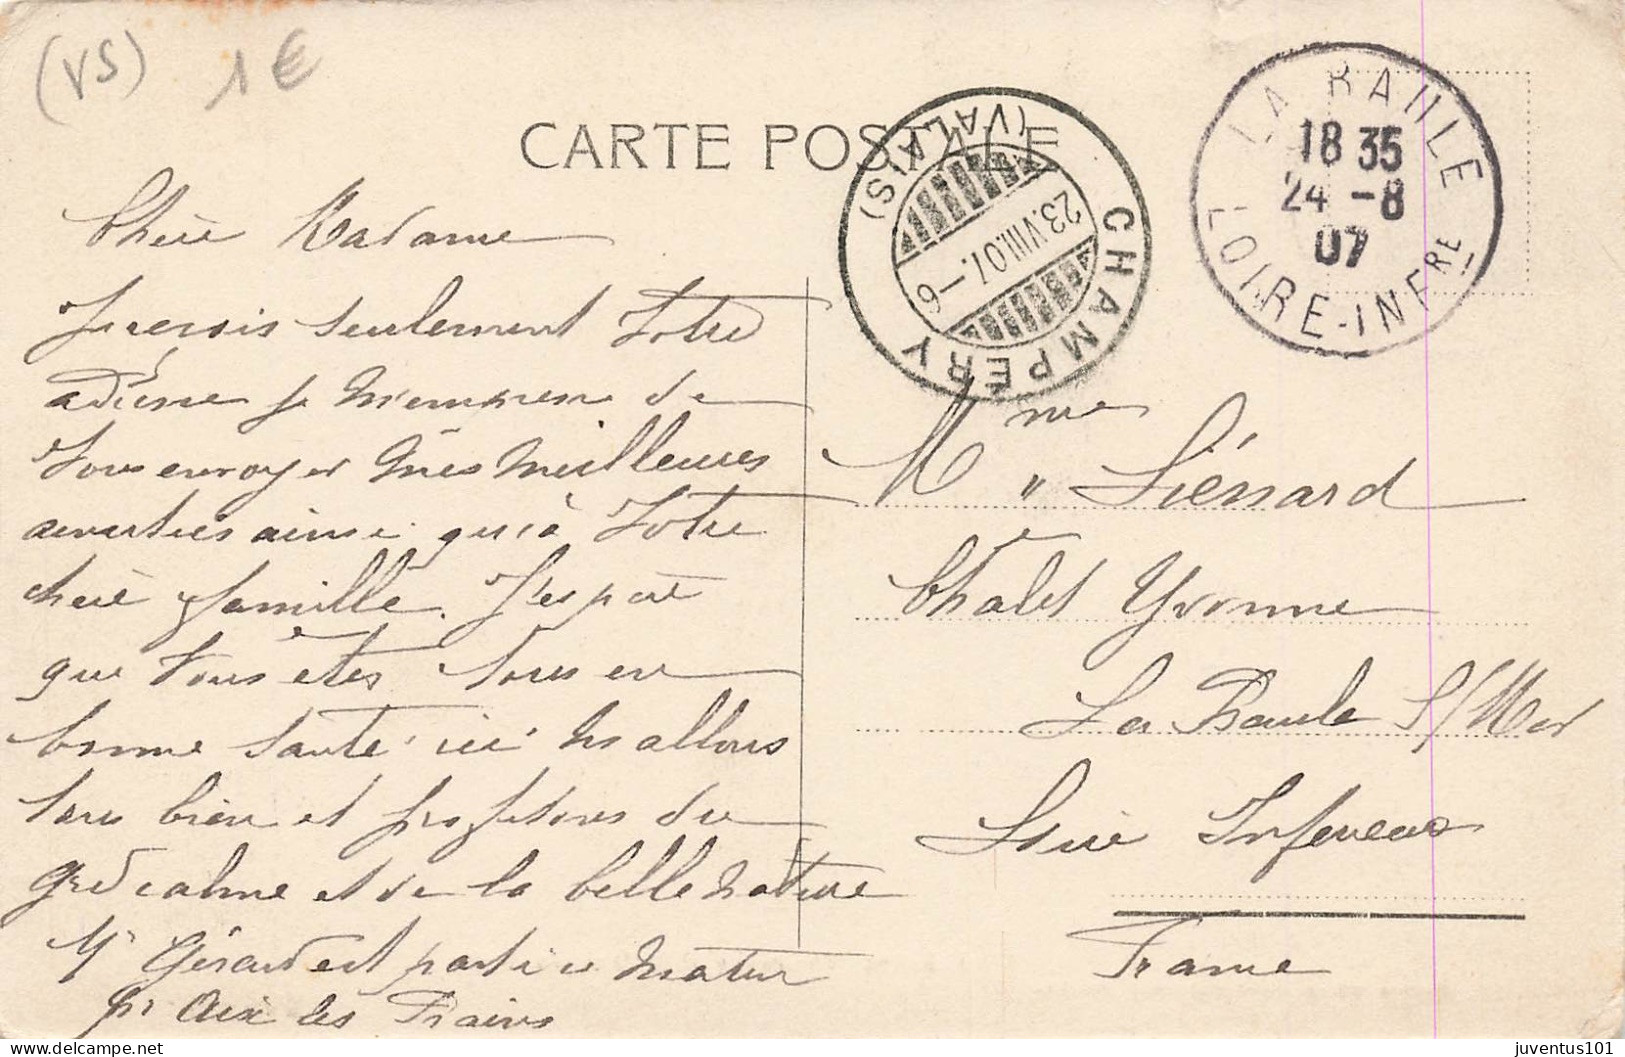 (VS) 1€
CARTE POSTALE
CHAMPÉRY
(VALAIS)
23.VIII.07.-6
LA BAULE
18 35
24 -8
07
LOIRE-INFRE
Chère Madame
Je reçois seulement Votre
adresse je m'empresse de
Vous envoyer mes meilleures
amitiés ainsi qu'à Votre
chère famille. J'espère
que Vous êtes tous en
bonne santé ici ns allons
tous bien et profitons du
grd calme et de la belle nature
Mr Gérard est parti ce matin
pr Aix les Bains
Mme Liénard
Chalet Yvonne
La Baule S/Mer
Loire Inférieure
France
juventus101